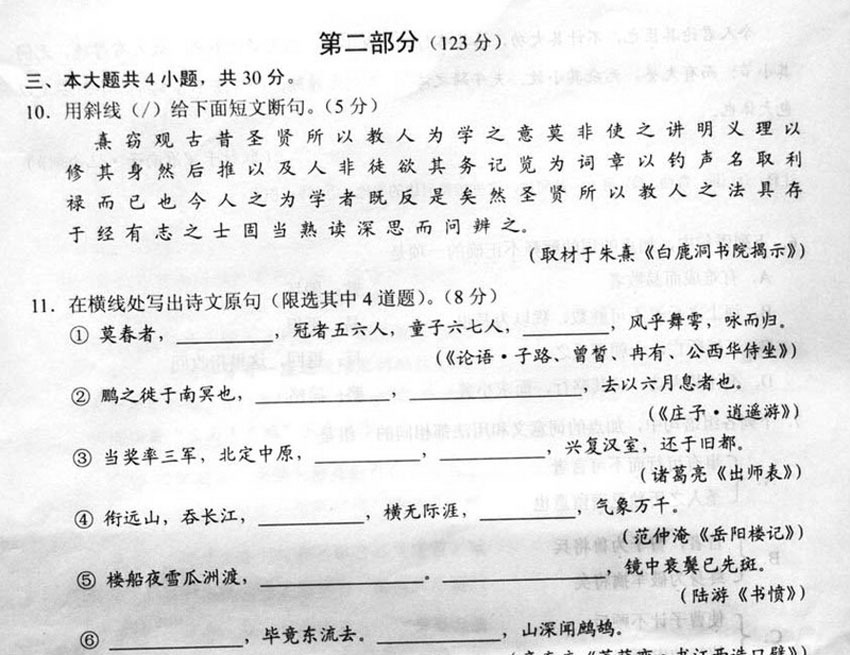 第二部分（123 分）
三、本大题共 4 小题，共 30 分。
10．用斜线（/）给下面短文断句。（5 分）
熹窃观古昔圣贤所以教人为学之意莫非使之讲明义理以
修其身然后推以及人非徒欲其务记览为词章以钓声名取利
禄而已也今人之为学者既反是矣然圣贤所以教人之法具存
于经有志之士固当熟读深思而问辨之。
（取材于朱熹《白鹿洞书院揭示》）
11．在横线处写出诗文原句（限选其中 4 道题）。（8 分）
① 莫春者，________，冠者五六人，童子六七人，________，风乎舞雩，咏而归。
（《论语·子路、曾皙、冉有、公西华侍坐》）
② 鹏之徙于南冥也，________，________，去以六月息者也。
（《庄子·逍遥游》）
③ 当奖率三军，北定中原，________，________，兴复汉室，还于旧都。
（诸葛亮《出师表》）
④ 衔远山，吞长江，________，横无际涯，________，气象万千。
（范仲淹《岳阳楼记》）
⑤ 楼船夜雪瓜洲渡，________。________，镜中衰鬓已先斑。
（陆游《书愤》）
⑥ ________，毕竟东流去。________，山深闻鹧鸪。